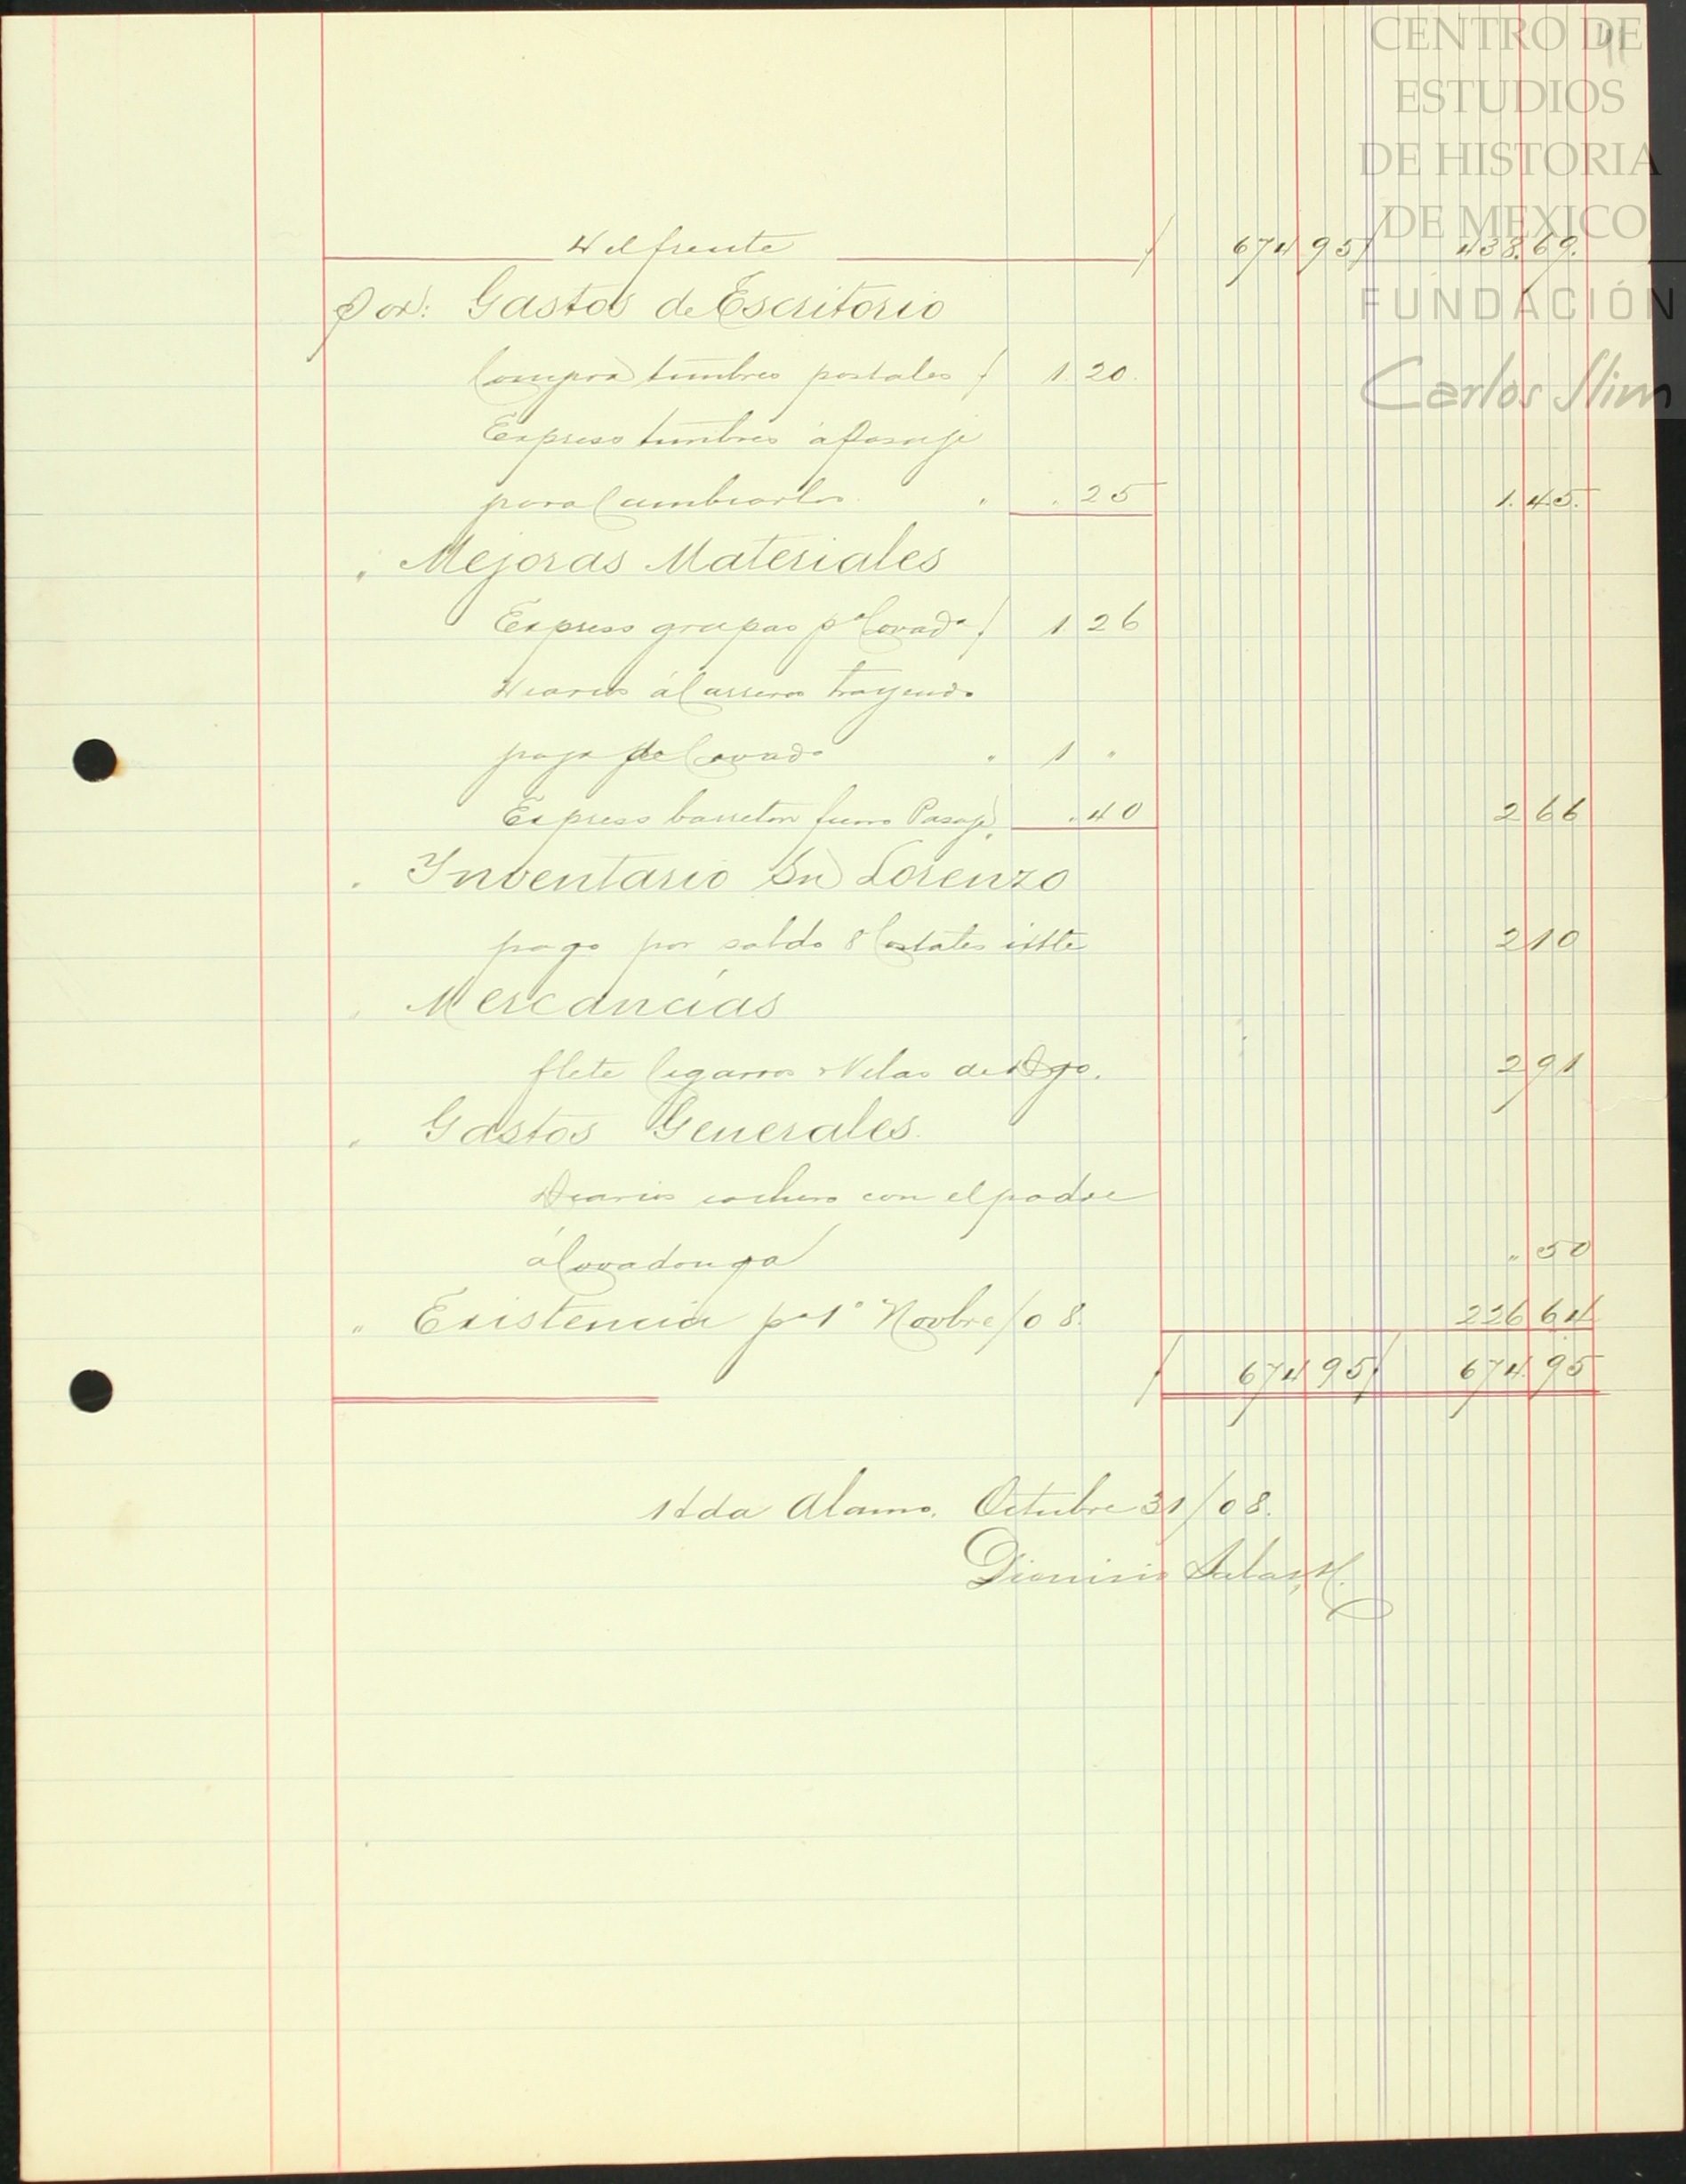 CENTRO DE
ESTUDIOS
DE HISTORIA
DE MEXICO
FUNDACIÓN
Carlos Slim
Del frente $ 674 95 $ 438.69.
Por: Gastos de Escritorio
Compra timbres postales $ 1.20.
Expreso timbres á Pasaje
para Cambiarlos. " " 25 1.45.
" Mejoras Materiales
Expreso grapas pa Covada $ 1.26
Diarios á Carreros trayendo
paja de Covada " 1 "
Expreso barreton fierro Pasaje " .40 2 66
" Inventario Sn Lorenzo
pago por saldo 8 Costales ixtle 2 10
" Mercancías
flete Cigarros y Velas de Dgo. 2 91
" Gastos Generales.
Diarios cochero con el padre
á Covadonga " 50
" Existencia pa 1° Novbre/08. 226 64
$ 674 95 $ 674.95
Hda Alamo. Octubre 31/08.
Dionisio Salas M.